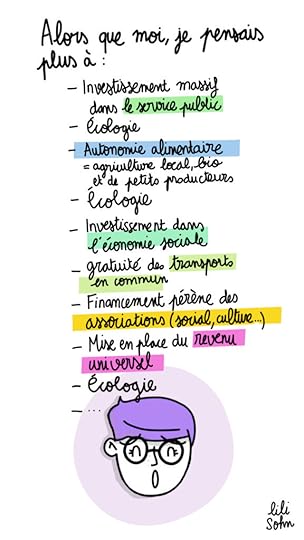 Alors que moi, je pensais
plus à :
- Investissement massif
dans le service public
- Écologie
- Autonomie alimentaire
= agriculture local, bio
et de petits producteurs
- Écologie
- Investissement dans
l'économie sociale
- gratuité des transports
en commun
- Financement pérène des
associations (social, culture...)
- Mise en place du revenu
universel
- Écologie
- ...
lili
Sohn